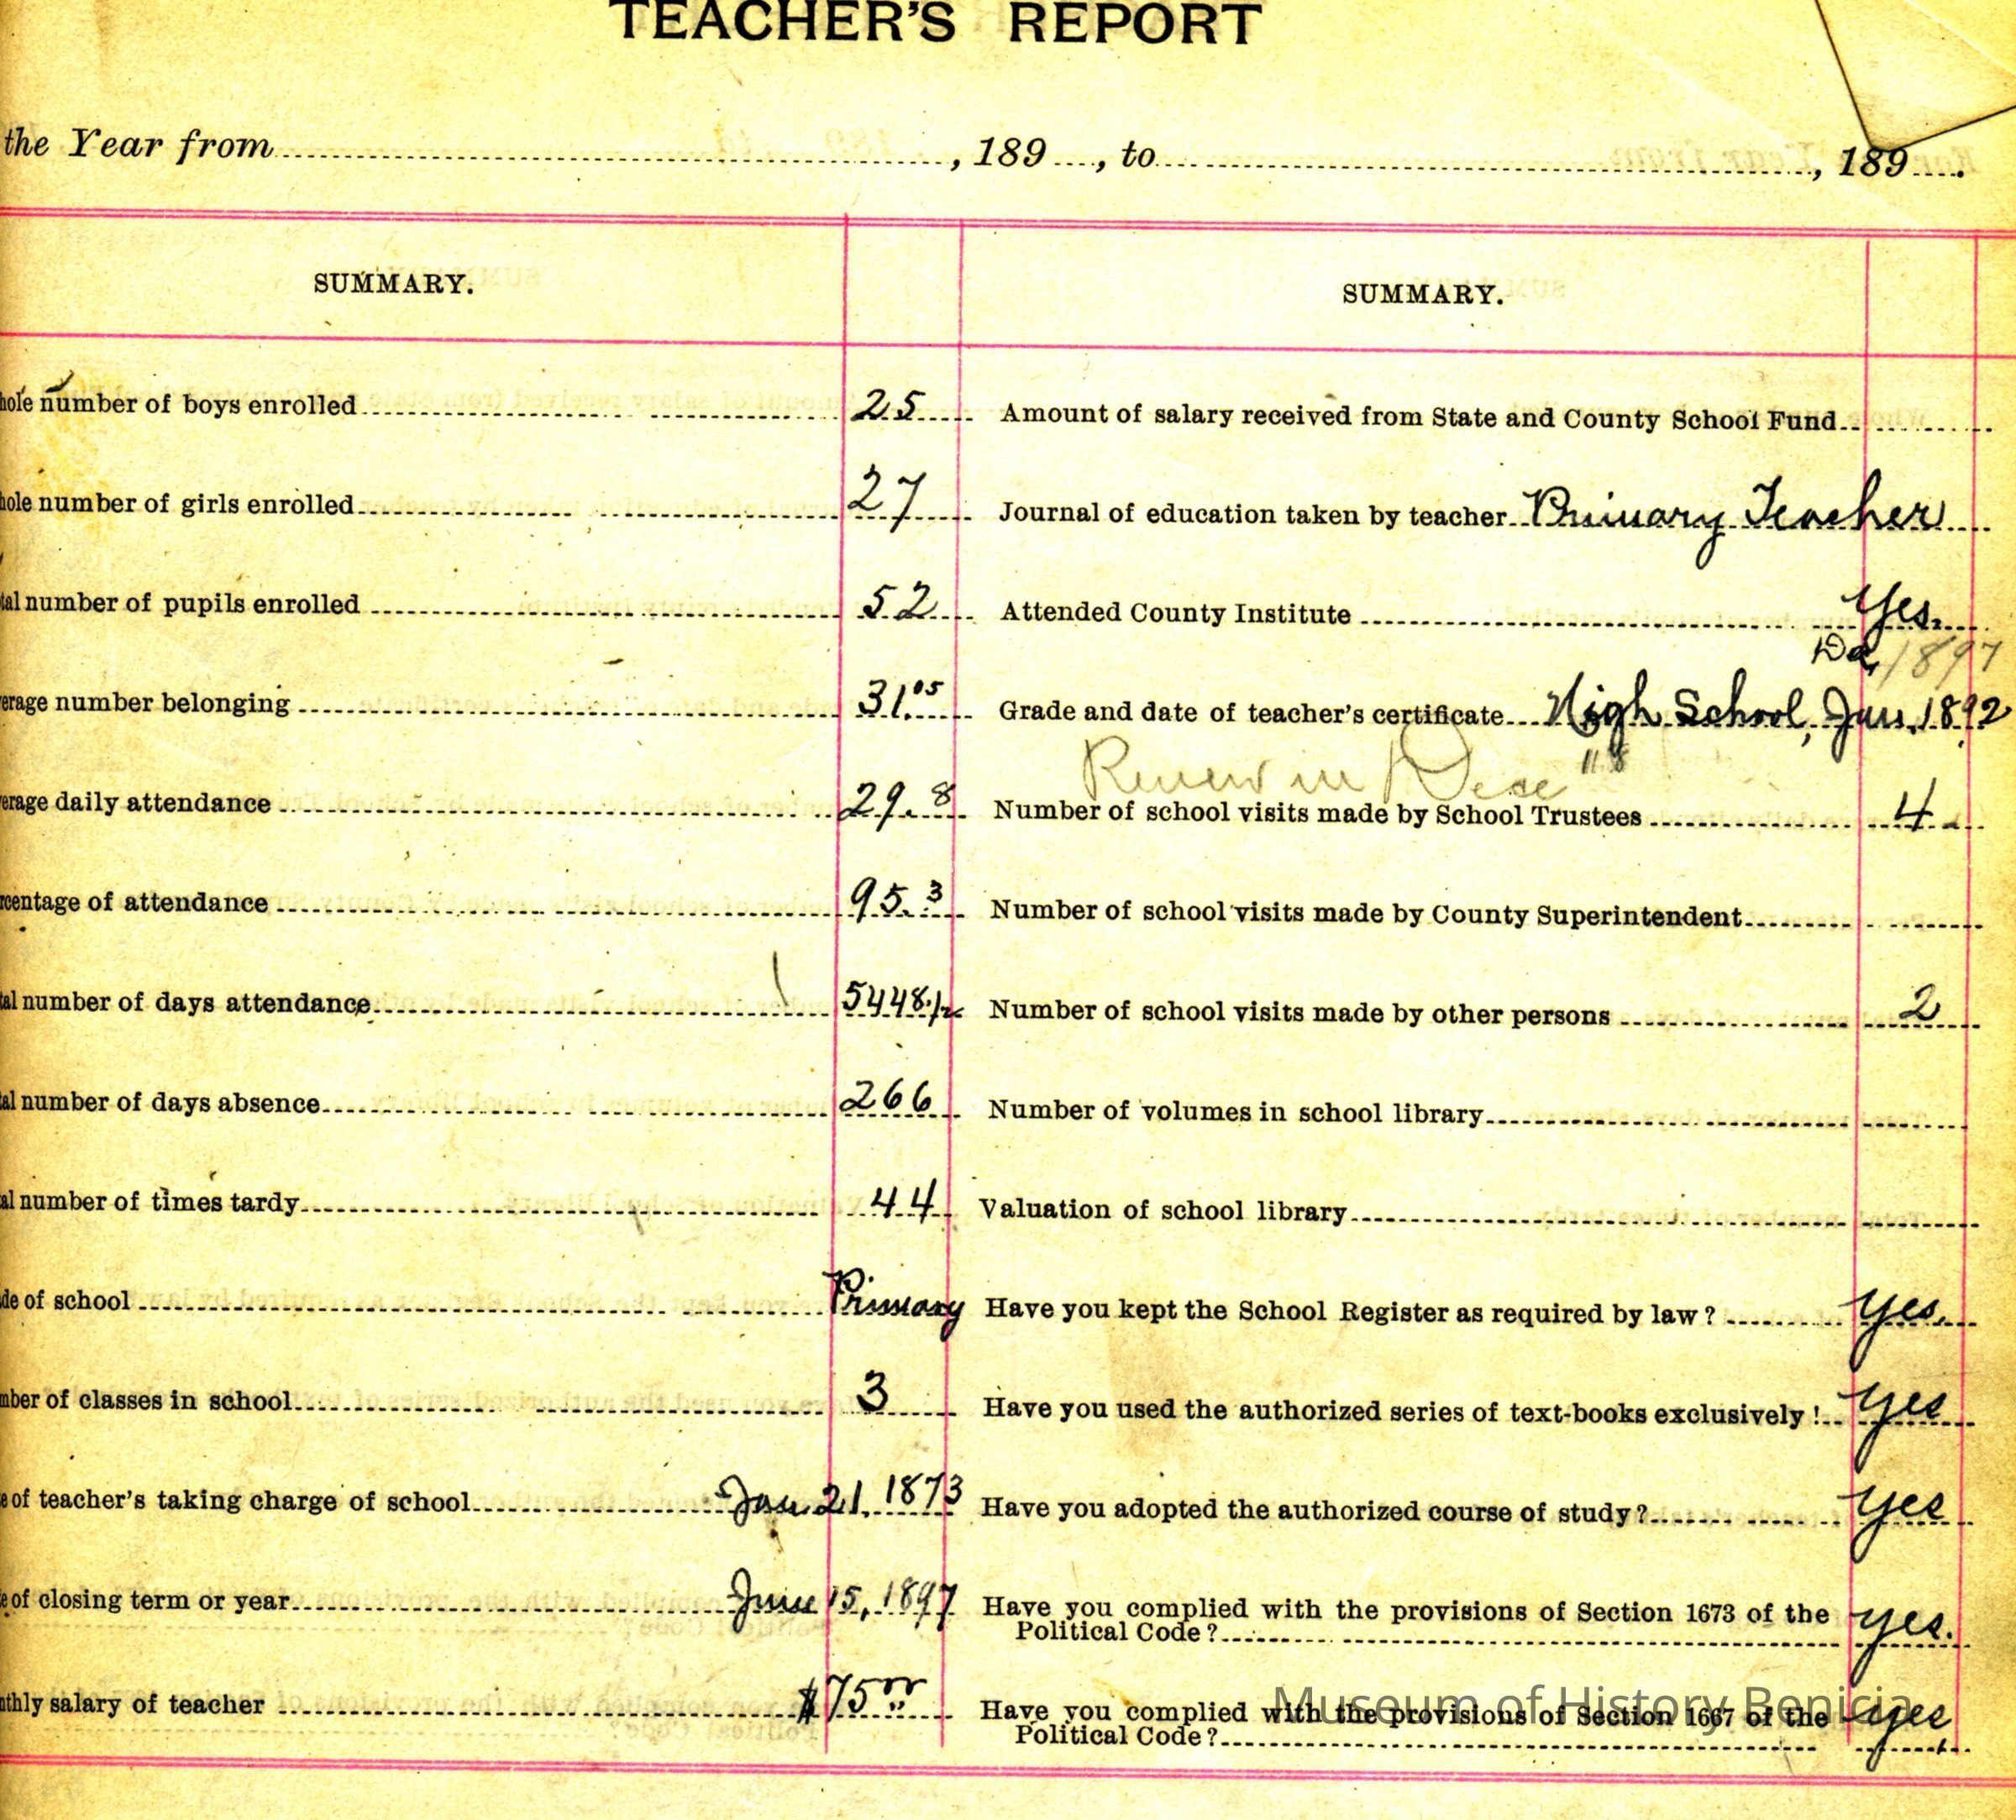 TEACHER'S REPORT
the Year from , 189 , to , 189 .
SUMMARY.
hole number of boys enrolled 25
hole number of girls enrolled 27
tal number of pupils enrolled 52
erage number belonging 31.05
erage daily attendance 29.8
rcentage of attendance 95.3
tal number of days attendance 5448 1/2
tal number of days absence 266
al number of times tardy 44
de of school Primary
mber of classes in school 3
e of teacher's taking charge of school Jan 21, 1873
e of closing term or year June 15, 1897
nthly salary of teacher $75
SUMMARY.
Amount of salary received from State and County School Fund
Journal of education taken by teacher Primary Teacher
Attended County Institute Yes.
1897
Grade and date of teacher's certificate High School, Jan. 1892
Renew in Dec
Number of school visits made by School Trustees 4
Number of school visits made by County Superintendent
Number of school visits made by other persons 2
Number of volumes in school library
Valuation of school library
Have you kept the School Register as required by law? Yes.
Have you used the authorized series of text-books exclusively! Yes
Have you adopted the authorized course of study? Yes
Have you complied with the provisions of Section 1673 of the
Political Code? Yes.
Have you complied with the provisions of Section 1667 of the
Political Code? Yes
Museum of History Benicia